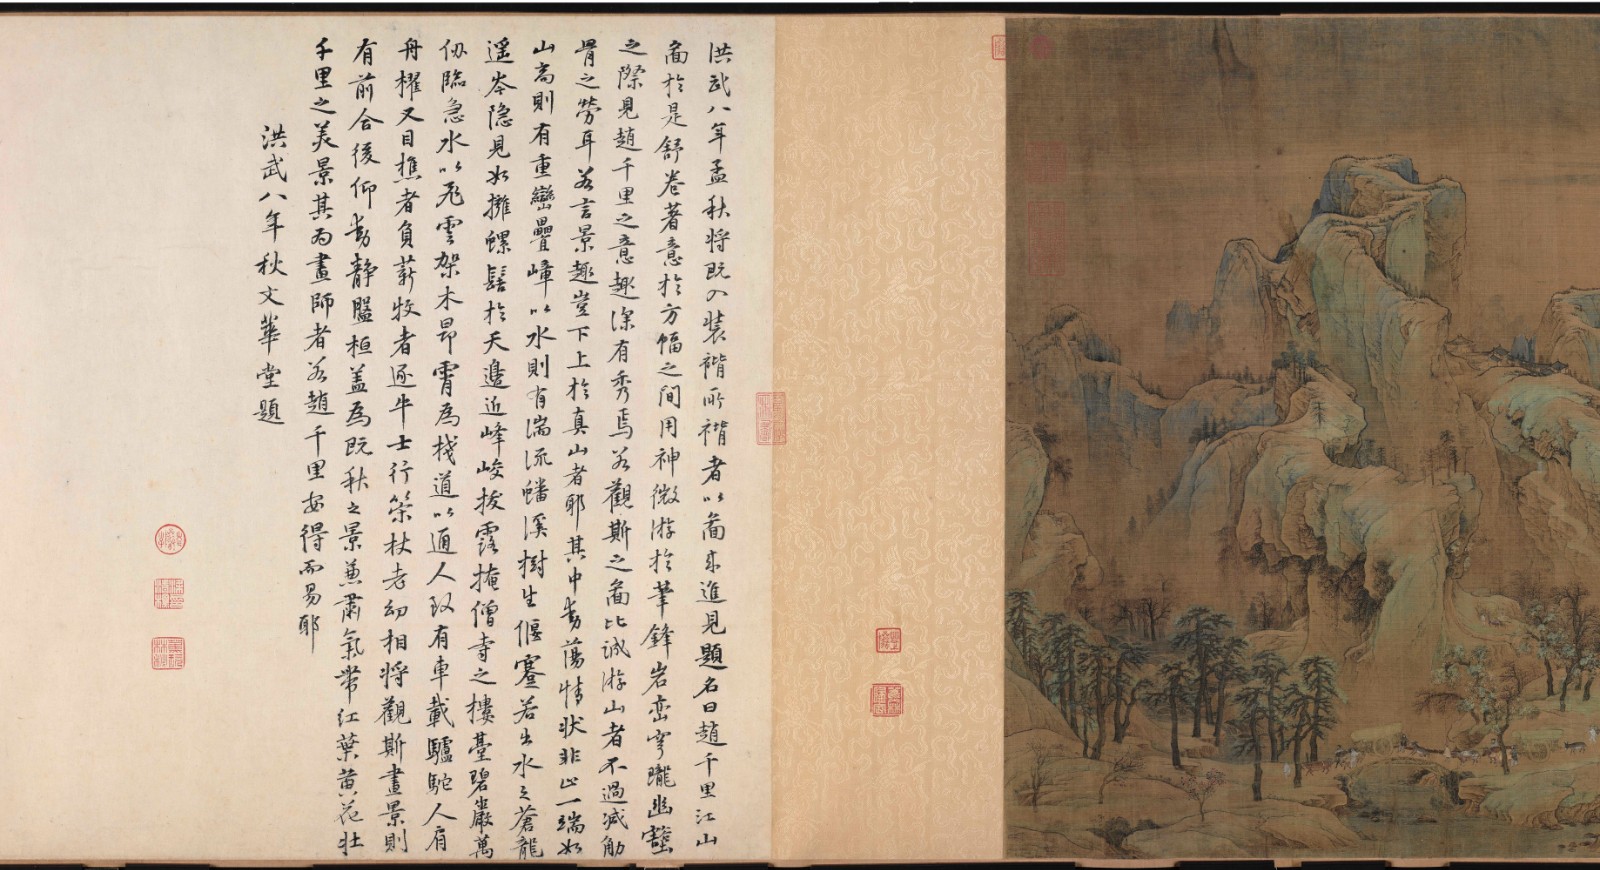 洪武八年孟秋將既入裝褙所褙者以啚來進見題名曰趙千里江山
啚於是舒卷著意於方幅之間用神微游於筆鋒岩巒穹朧幽壑
之際見趙千里之意趣深有秀焉若觀斯之啚比誠游山者不過減觔
骨之勞耳若言景趣豈下上於真山者耶其中動蕩情狀非止一端如
山高則有重巒疊嶂以水則有湍流蟠溪樹生偃蹇若出水之蒼龍
遥岑隐見如擁螺髻於天邊近峰峻拔露掩僧寺之樓臺碧巖萬
仭臨急水以飛雲架木昂霄為棧道以通人致有車載驢駝人肩
舟櫂又目樵者負薪牧者逐牛士行策杖老幼相將觀斯畫景則
有前合後仰動靜盤桓蓋為既秋之景兼肅氣帶紅葉黄花壯
千里之美景其為畫師者若趙千里安得而易耶
洪武八年秋文華堂題